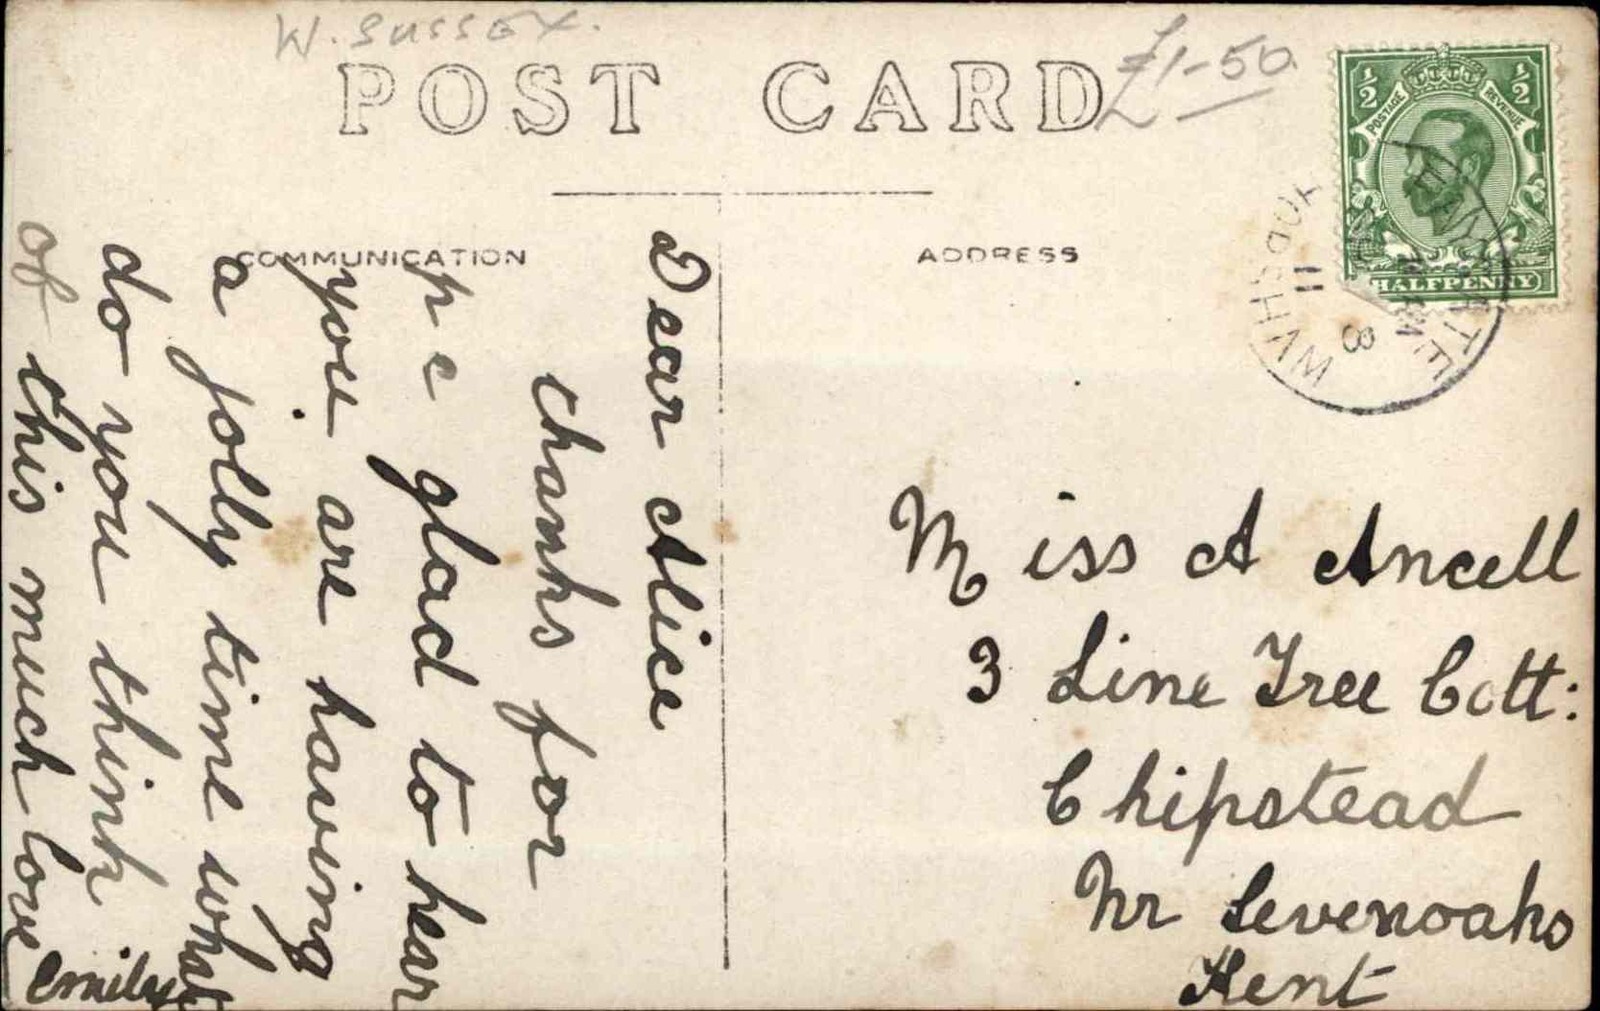 W. SUSSEX.
£1-50
POST CARD
COMMUNICATION
ADDRESS
½ ½
POSTAGE REVENUE
HALFPENNY
11
8
Dear Alice
thanks for
p c glad to hear
you are having
a jolly time what
do you think
of this much love
Emily
Miss A Ancell
3 Lime Tree Cott:
Chipstead
Nr Sevenoaks
Kent